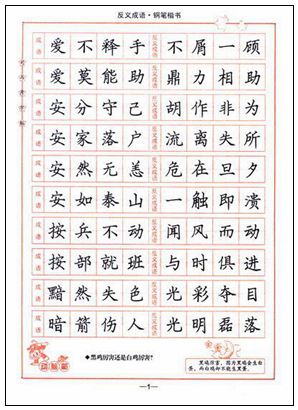 反义成语·钢笔楷书
成语 爱不释手 反义成语 不屑一顾
成语 爱莫能助 反义成语 鼎力相助
成语 安分守己 反义成语 胡作非为
成语 安家落户 反义成语 流离失所
成语 安然无恙 反义成语 危在旦夕
成语 安如泰山 反义成语 一触即溃
成语 按兵不动 反义成语 闻风而动
成语 按部就班 反义成语 与时俱进
成语 黯然失色 反义成语 光彩夺目
成语 暗箭伤人 反义成语 光明磊落
◆黑鸡厉害还是白鸡厉害?
黑鸡厉害，因为黑鸡会生白
蛋，而白鸡却不能生黑蛋。
—1—